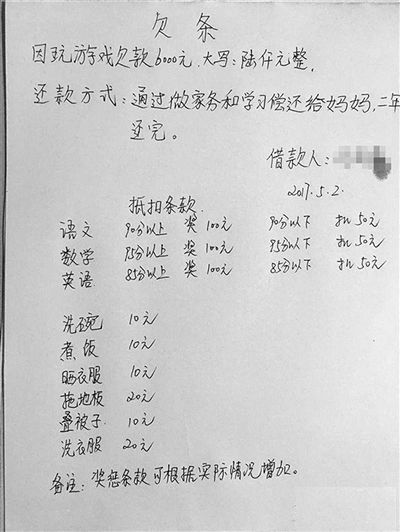 欠条
因玩游戏欠款6000元，大写：陆仟元整，
还款方式：通过做家务和学习偿还给妈妈，二年
还完。
借款人：
2017.5.2.
抵扣条款
语文 90分以上 奖100元 90分以下 扣50元
数学 95分以上 奖100元 95分以下 扣50元
英语 85分以上 奖100元 85分以下 扣50元
洗碗 10元
煮饭 10元
晒衣服 10元
拖地板 20元
叠被子 10元
洗衣服 20元
备注：奖惩条款可根据实际情况增加。